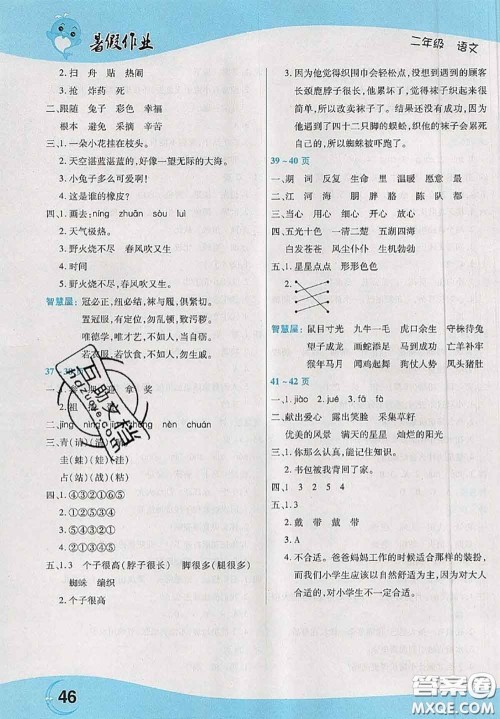 暑假作业
二年级 语文
2. 扫 舟 贴 热闹
3. 抢 炸药 死
二、跟随 兔子 彩色 幸福
根本 避免 采摘 辛苦
三、1. 一朵小花挂在枝头。
2. 天空湛蓝湛蓝的,好像一望无际的大海。
3. 小兔子多么可爱啊!
4. 这是谁的橡皮?
四、1. 画去:níng zhuān sòu luì
2. 天气极热。
3. 野火烧不尽 春风吹又生
4. 时间
5. 野火烧不尽,春风吹又生。
智慧屋: 冠必正,纽必结,袜与履,俱紧切。
置冠服,有定位,勿乱顿,致污秽。
唯德学,唯才艺,不如人,当自砺。
若衣服,若饮食,不如人,勿生戚。
37
拿 奖
2. 祖
chén
三、青(请)(清)(情)(晴)
圭(蛙)(娃)(洼)
占(站)(战)(粘)
四、1. ④③②①⑥⑤
2. ⑤①③④②
3. ⑤④③②①
五、1. 3 个子很高(脖子很长) 脚很多(腿很多)
蜘蛛 编织
2. 个子很高
3. 因为他觉得织围巾会轻松点,没想到遇到的顾客
长颈鹿脖子很长,累坏了,他觉得袜子织起来很
简单,所以改卖袜子了。结果还没有成功,因为
遇到了四十二只脚的蜈蚣,织袜子会累死自己
的,所以蜘蛛被吓跑了。
39－40 页
一、期 词 反复 生命 里 温暖 愿意 最
二、江 河 海 朋 胖 胳 陈 队 都
三、当心 用心 细心 开心 关心
四、五光十色 一清二楚 五湖四海
白发苍苍 风尘仆仆 生机勃勃
五、1. 星星点点 形形色色
2.
智慧屋: 鼠目寸光 九牛一毛 虎口余生 守株待兔
望子成龙 画蛇添足 马到成功 亡羊补牢
猴年马月 闻鸡起舞 狗仗人势 凤头猪肚
41－42 页
一、1. jiào 2. jiǎ 3. fā
二、献出爱心 露出笑脸 采集草籽
优美的风景 满天的星星 灿烂的阳光
三、1. 你那么认真,就一定能记住知识。
2. 书包被我背回了家。
四、1 3 2 5 4
五、1. 3
2. 戴 带 戴 带
3. A
4. 不合适。爸爸妈妈工作的时候适合那样的装扮,
而我们小学生应该以自然舒适为主,因为大人
合适的,对小学生不一定合适。
46
答案圈
MXQE.COM